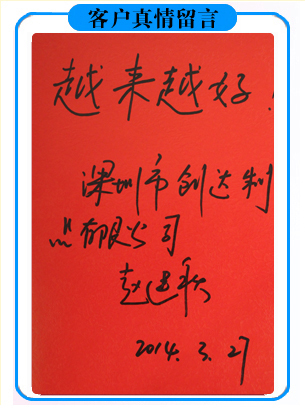 客户真情留言
越来越好!
深圳市创达制
品有限公司
赵
2014.3.27